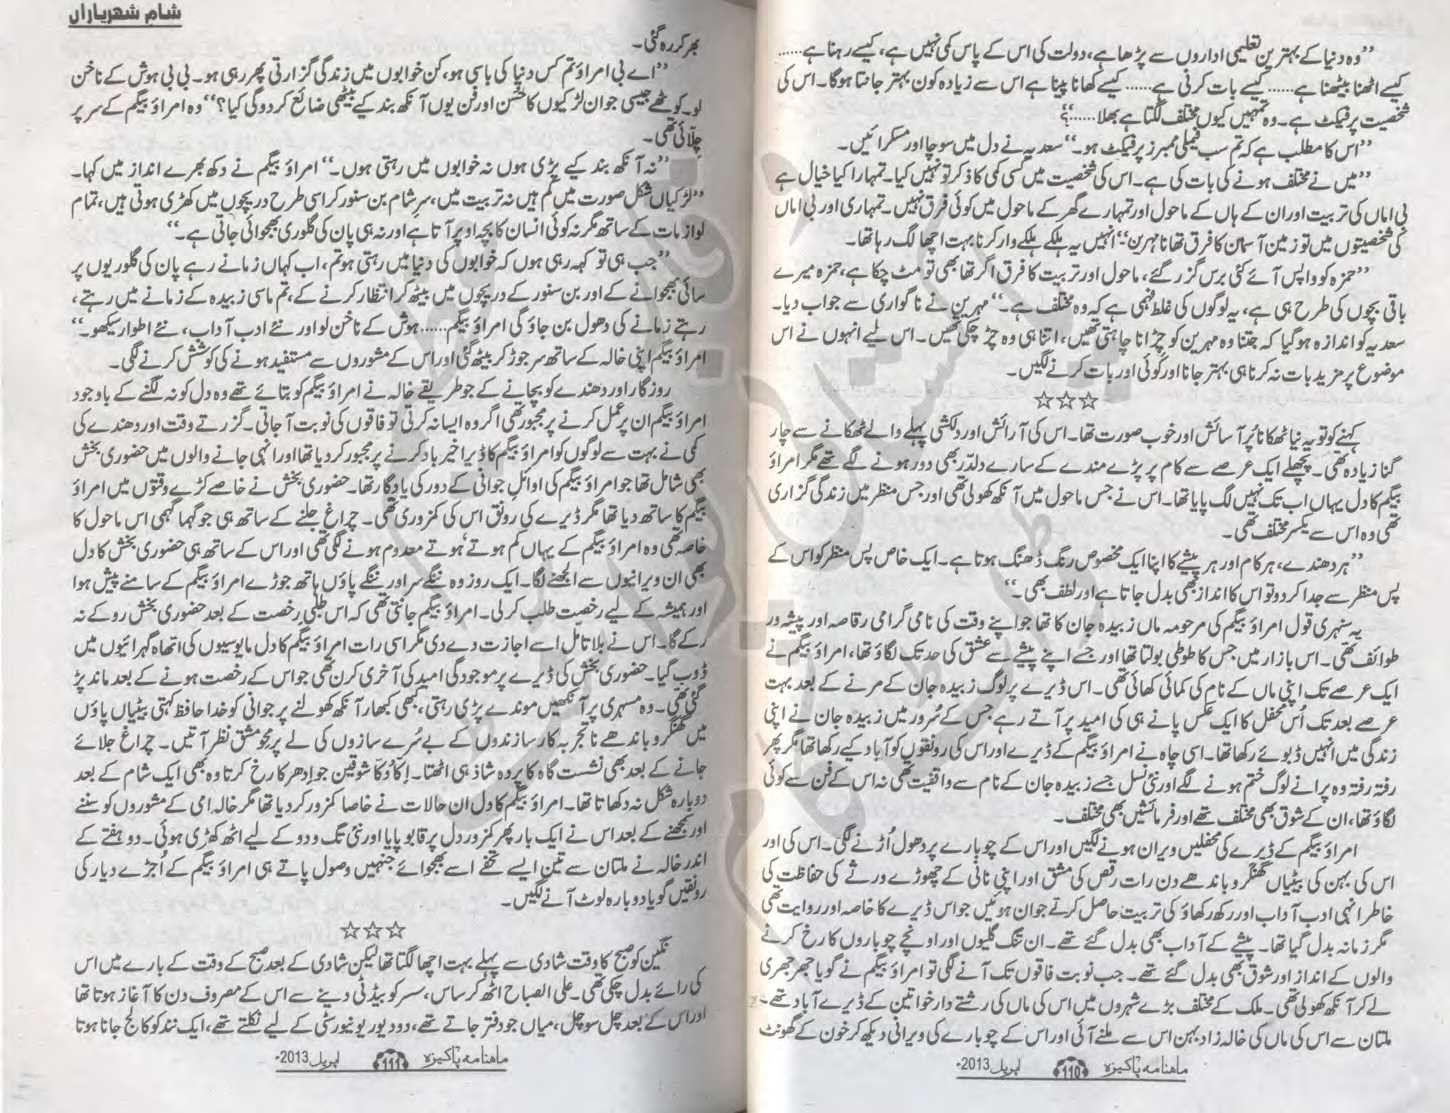 ’’وہ دنیا کے بہترین تعلیمی اداروں سے پڑھا ہے، دولت کی اس کے پاس کمی نہیں ہے، کیسے رہنا ہے......
کیسے اٹھنا بیٹھنا ہے...... کیسے بات کرنی ہے...... کیسے کھانا پینا ہے اس سے زیادہ کون بہتر جانتا ہوگا۔ اس کی
شخصیت پرفیکٹ ہے۔ وہ تمہیں کیوں مختلف لگتا ہے بھلا......؟
’’اس کا مطلب ہے کہ تم سب فیملی ممبرز پرفیکٹ ہو۔‘‘ سعدیہ نے دل میں سوچا اور مسکرائیں۔
’’میں نے مختلف ہونے کی بات کی ہے۔ اس کی شخصیت میں کسی کمی کا ذکر تو نہیں کیا۔ تمہارا کیا خیال ہے
بی اماں کی تربیت اور ان کے ہاں کے ماحول اور تمہارے گھر کے ماحول میں کوئی فرق نہیں۔ تمہاری اور بی اماں
کی شخصیتوں میں تو زمین آسمان کا فرق تھا نا مہرین‘‘ انہیں یہ ہلکے ہلکے وار کرنا بہت اچھا لگ رہا تھا۔
’’حمزہ کو واپس آئے کئی برس گزر گئے، ماحول اور تربیت کا فرق اگر تھا بھی تو مٹ چکا ہے، حمزہ میرے
باقی بچوں کی طرح ہی ہے، یہ لوگوں کی غلط فہمی ہے کہ وہ مختلف ہے۔‘‘ مہرین نے ناگواری سے جواب دیا۔
سعدیہ کو اندازہ ہو گیا کہ جتنا وہ مہرین کو چڑانا چاہتی تھیں، اتنا ہی وہ چڑ چکی تھیں۔ اس لیے انہوں نے اس
موضوع پر مزید بات نہ کرنا ہی بہتر جانا اور کوئی اور بات کرنے لگیں۔
☆☆☆
کہنے کو تو یہ نیا ٹھکانا پُرآسائش اور خوب صورت تھا۔ اس کی آرائش اور دلکشی پہلے والے ٹھکانے سے چار
گنا زیادہ تھی۔ پچھلے ایک عرصے سے کام پر پڑے مندے کے سارے دلدّر بھی دور ہونے لگے تھے مگر امراؤ
بیگم کا دل یہاں اب تک نہیں لگ پایا تھا۔ اس نے جس ماحول میں آنکھ کھولی تھی اور جس منظر میں زندگی گزاری
تھی وہ اس سے یکسر مختلف تھی۔
’’ہر دھندے، ہر کام اور ہر پیشے کا اپنا ایک مخصوص رنگ ڈھنگ ہوتا ہے۔ ایک خاص پس منظر کو اس کے
پس منظر سے جدا کر دو تو اس کا انداز بھی بدل جاتا ہے اور لطف بھی۔‘‘
یہ سنہری قول امراؤ بیگم کی مرحومہ ماں زبیدہ جان کا تھا جو اپنے وقت کی نامی گرامی رقاصہ اور پیشہ ور
طوائف تھی۔ اس بازار میں جس کا طوطی بولتا تھا اور جسے اپنے پیشے سے عشق کی حد تک لگاؤ تھا، امراؤ بیگم نے
ایک عرصے تک اپنی ماں کے نام کی کمائی کھائی تھی۔ اس ڈیرے پر لوگ زبیدہ جان کے مرنے کے بعد بہت
عرصے بعد تک اُس محفل کا ایک عکس پانے ہی کی امید پر آتے رہے جس کے سُرور میں زبیدہ جان نے اپنی
زندگی میں انہیں ڈبوئے رکھا تھا۔ اسی چاہ نے امراؤ بیگم کے ڈیرے اور اس کی رونقوں کو آباد کیے رکھا تھا مگر پھر
رفتہ رفتہ وہ پرانے لوگ ختم ہونے لگے اور نئی نسل جسے زبیدہ جان کے نام سے واقفیت تھی نہ اس کے فن سے کوئی
لگاؤ تھا، ان کے شوق بھی مختلف تھے اور فرمائشیں بھی مختلف۔
امراؤ بیگم کے ڈیرے کی محفلیں ویران ہونے لگیں اور اس کے چوبارے پر دھول اُڑنے لگی۔ اس کی اور
اس کی بہن کی بیٹیاں گھنگرو باندھے دن رات رقص کی مشق اور اپنی نانی کے چھوڑے ورثے کی حفاظت کی
خاطر انہی ادب آداب اور رکھ رکھاؤ کی تربیت حاصل کرتے جوان ہوئیں جو اس ڈیرے کا خاصہ اور روایت تھی
مگر زمانہ بدل گیا تھا۔ پیشے کے آداب بھی بدل گئے تھے۔ ان تنگ گلیوں اور اونچے چوباروں کا رخ کرنے
والوں کے انداز اور شوق بھی بدل گئے تھے۔ جب نوبت فاقوں تک آنے لگی تو امراؤ بیگم نے گویا جھرجھری
لے کر آنکھ کھولی تھی۔ ملک کے مختلف بڑے شہروں میں اس کی ماں کی رشتے دار خواتین کے ڈیرے آباد تھے۔
ملتان سے اس کی ماں کی خالہ زاد بہن اس سے ملنے آئی اور اس کے چوبارے کی ویرانی دیکھ کر خون کے گھونٹ
ماهنامہ پاکیزہ 110 اپریل 2013ء
شام شهریاراں
بھر کر رہ گئی۔
’’اے بی امراؤ تم کس دنیا کی باسی ہو، کن خوابوں میں زندگی گزارتی پھر رہی ہو۔ بی بی ہوش کے ناخن
لو۔ کوٹھے جیسی جوان لڑکیوں کا حُسن اور فن یوں آنکھ بند کیے بیٹھی ضائع کر دو گی کیا؟‘‘ وہ امراؤ بیگم کے سر پر
چلّائی تھی۔
’’نہ آنکھ بند کیے پڑی ہوں نہ خوابوں میں رہتی ہوں۔‘‘ امراؤ بیگم نے دکھ بھرے انداز میں کہا۔
’’لڑکیاں شکل صورت میں کم ہیں نہ تربیت میں، سرِشام بن سنور کر اسی طرح دریچوں میں کھڑی ہوتی ہیں، تمام
لوازمات کے ساتھ مگر نہ کوئی انسان کا بچہ اوپر آتا ہے اور نہ ہی پان کی گلوری بھجوائی جاتی ہے۔‘‘
’’جب ہی تو کہہ رہی ہوں کہ خوابوں کی دنیا میں رہتی ہو تم، اب کہاں زمانے رہے پان کی گلوریوں پر
سائی بھجوانے کے اور بن سنور کے دریچوں میں بیٹھ کر انتظار کرنے کے، تم ماسی زبیدہ کے زمانے میں رہتے،
رہتے زمانے کی دھول بن جاؤ گی امراؤ بیگم...... ہوش کے ناخن لو اور نئے ادب آداب، نئے اطوار سیکھو۔‘‘
امراؤ بیگم اپنی خالہ کے ساتھ سر جوڑ کر بیٹھ گئی اور اس کے مشوروں سے مستفید ہونے کی کوشش کرنے لگی۔
روزگار اور دھندے کو بچانے کے جو طریقے خالہ نے امراؤ بیگم کو بتائے تھے وہ دل کو نہ لگنے کے باوجود
امراؤ بیگم ان پر عمل کرنے پر مجبور تھی اگر وہ ایسا نہ کرتی تو فاقوں کی نوبت آجاتی۔ گزرتے وقت اور دھندے کی
کمی نے بہت سے لوگوں کو امراؤ بیگم کا ڈیرا خیرباد کرنے پر مجبور کر دیا تھا اور انہی جانے والوں میں حضوری بخش
بھی شامل تھا جو امراؤ بیگم کی اوائلِ جوانی کے دور کی یادگار تھا۔ حضوری بخش نے خاصے کڑے وقتوں میں امراؤ
بیگم کا ساتھ دیا تھا مگر ڈیرے کی رونق اس کی کمزوری تھی۔ چراغ جلنے کے ساتھ ہی جو گہما گہمی اس ماحول کا
خاصہ تھی وہ امراؤ بیگم کے یہاں کم ہوتے ہوتے معدوم ہونے لگی تھی اور اس کے ساتھ ہی حضوری بخش کا دل
بھی ان ویرانیوں سے الجھنے لگا۔ ایک روز وہ ننگے سر اور ننگے پاؤں ہاتھ جوڑے امراؤ بیگم کے سامنے پیش ہوا
اور ہمیشہ کے لیے رخصت طلب کر لی۔ امراؤ بیگم جانتی تھی کہ اس طلبیِ رخصت کے بعد حضوری بخش روکے نہ
رکے گا۔ اس نے بلا تامل اسے اجازت دے دی مگر اسی رات امراؤ بیگم کا دل مایوسیوں کی اتھاہ گہرائیوں میں
ڈوب گیا۔ حضوری بخش کی ڈیرے پر موجودگی امید کی آخری کرن تھی جو اس کے رخصت ہونے کے بعد ماند پڑ
گئی تھی۔ وہ مسہری پر آنکھیں موندے پڑی رہتی، کبھی کبھار آنکھ کھولنے پر جوانی کو خدا حافظ کہتی بیٹیاں پاؤں
میں گھنگرو باندھے ناتجربہ کار سازندوں کے بے سُرے سازوں کی لے پر محوِ مشق نظر آتیں۔ چراغ جلائے
جانے کے بعد بھی نشست گاہ کا پردہ شاذ ہی اٹھتا۔ اِکّا دُکّا شوقین جو اِدھر کا رخ کرتا وہ بھی ایک شام کے بعد
دوبارہ شکل نہ دکھاتا تھا۔ امراؤ بیگم کا دل ان حالات نے خاصا کمزور کر دیا تھا مگر خالہ امی کے مشوروں کو سننے
اور سمجھنے کے بعد اس نے ایک بار پھر کمزور دل پر قابو پایا اور نئی تگ و دو کے لیے اٹھ کھڑی ہوئی۔ دو ہفتے کے
اندر خالہ نے ملتان سے تین ایسے تحفے اسے بھجوائے جنہیں وصول پاتے ہی امراؤ بیگم کے اُجڑے دیار کی
رونقیں گویا دوبارہ لوٹ آنے لگیں۔
☆☆☆
نگین کو صبح کا وقت شادی سے پہلے بہت اچھا لگتا تھا لیکن شادی کے بعد صبح کے وقت کے بارے میں اس
کی رائے بدل چکی تھی۔ علی الصباح اٹھ کر ساس، سسر کو بیڈ ٹی دینے سے اس کے مصروف دن کا آغاز ہوتا تھا
اور اس کے بعد چل سو چل، میاں جو دفتر جاتے تھے، دو دیور یونیورسٹی کے لیے نکلتے تھے، ایک نند کو کالج جانا ہوتا
ماهنامہ پاکیزہ 111 اپریل 2013ء